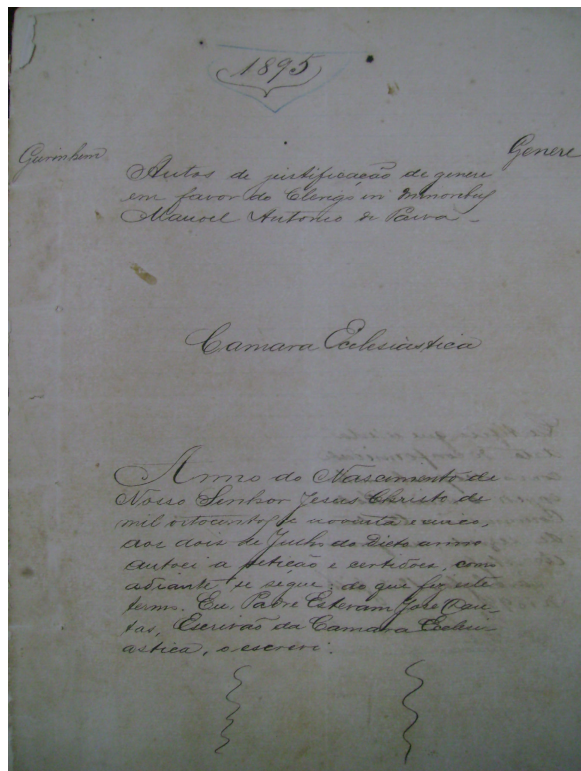 1895
Gurinhem
Genere
Autos de justificação de genere
em favor do Clerigo in minoribus
Manoel Antonio de Paiva
Camara Ecclesiastica
Anno do Nascimento de
Nosso Senhor Jesus Christo de
mil oitocentos e noventa e cinco,
aos dois de Junho do dito anno
autoei a petição e certidões, como
adiante se segue; do que fiz este
termo. Eu, Padre Estevam José Dan-
tas, Escrivão da Camara Ecclesi-
astica, o escrevi.